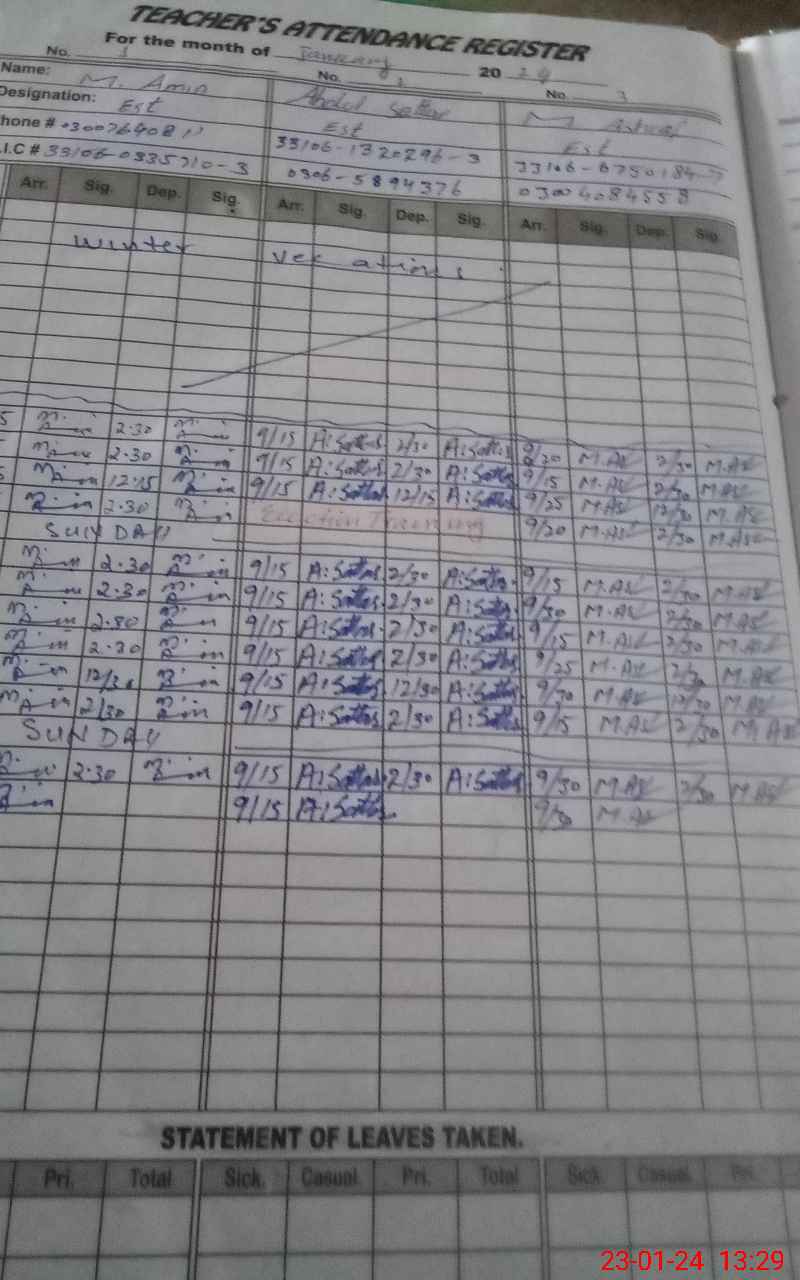 TEACHER'S ATTENDANCE REGISTER
For the month of January 2024
No. 1 No. 2 No. 3
Name: M. Amin Abdul Sattar M.
Designation: Est Est Est
hone # 33106-1320296-3 33106-6750184-7
.I.C # 33106-0335710-3 0306-5894376 0300 4084558
Arr. Sig. Dep. Sig. Arr. Sig. Dep. Sig. Arr. Sig. Dep. Sig.
winter vecations
5 M. Amin 2.30 M. Amin 9/15 A:Sattar 2/30 A:Sattar 9/20 M.AS 2/30 M.AS
M. Amin 2.30 M. Amin 9/15 A:Sattar 2/30 A:Sattar 9/15 M.AS 2/30 M.AS
M. Amin 12:15 M. Amin 9/15 A:Sattar 12/15 A:Sattar 9/25 M.AS 12/30 M.AS
M. Amin 2.30 M. Amin Election Training 9/20 M.AS 2/30 M.AS
SUNDAY
M. Amin 2.30 M. Amin 9/15 A:Sattar 2/30 A:Sattar 9/15 M.AS 2/30 M.AS
M. Amin 2.30 M. Amin 9/15 A:Sattar 2/30 A:Sattar 9/30 M.AS 2/30 M.AS
M. Amin 2.30 M. Amin 9/15 A:Sattar 2/30 A:Sattar 9/15 M.AS 2/30 M.AS
M. Amin 2.30 M. Amin 9/15 A:Sattar 2/30 A:Sattar 9/25 M.AS 2/30 M.AS
M. Amin 12/30 M. Amin 9/15 A:Sattar 12/30 A:Sattar 9/30 M.AS 12/30 M.AS
M. Amin 2/30 M. Amin 9/15 A:Sattar 2/30 A:Sattar 9/15 M.AS 2/30 M.AS
SUNDAY
M. Amin 2.30 M. Amin 9/15 A:Sattar 2/30 A:Sattar 9/30 M.AS 2/30 M.AS
M. Amin 9/15 A:Sattar 9/30 M.AS
STATEMENT OF LEAVES TAKEN.
Pri. Total Sick. Casual. Pri. Total Sick. Casual. Pri.
23-01-24 13:29